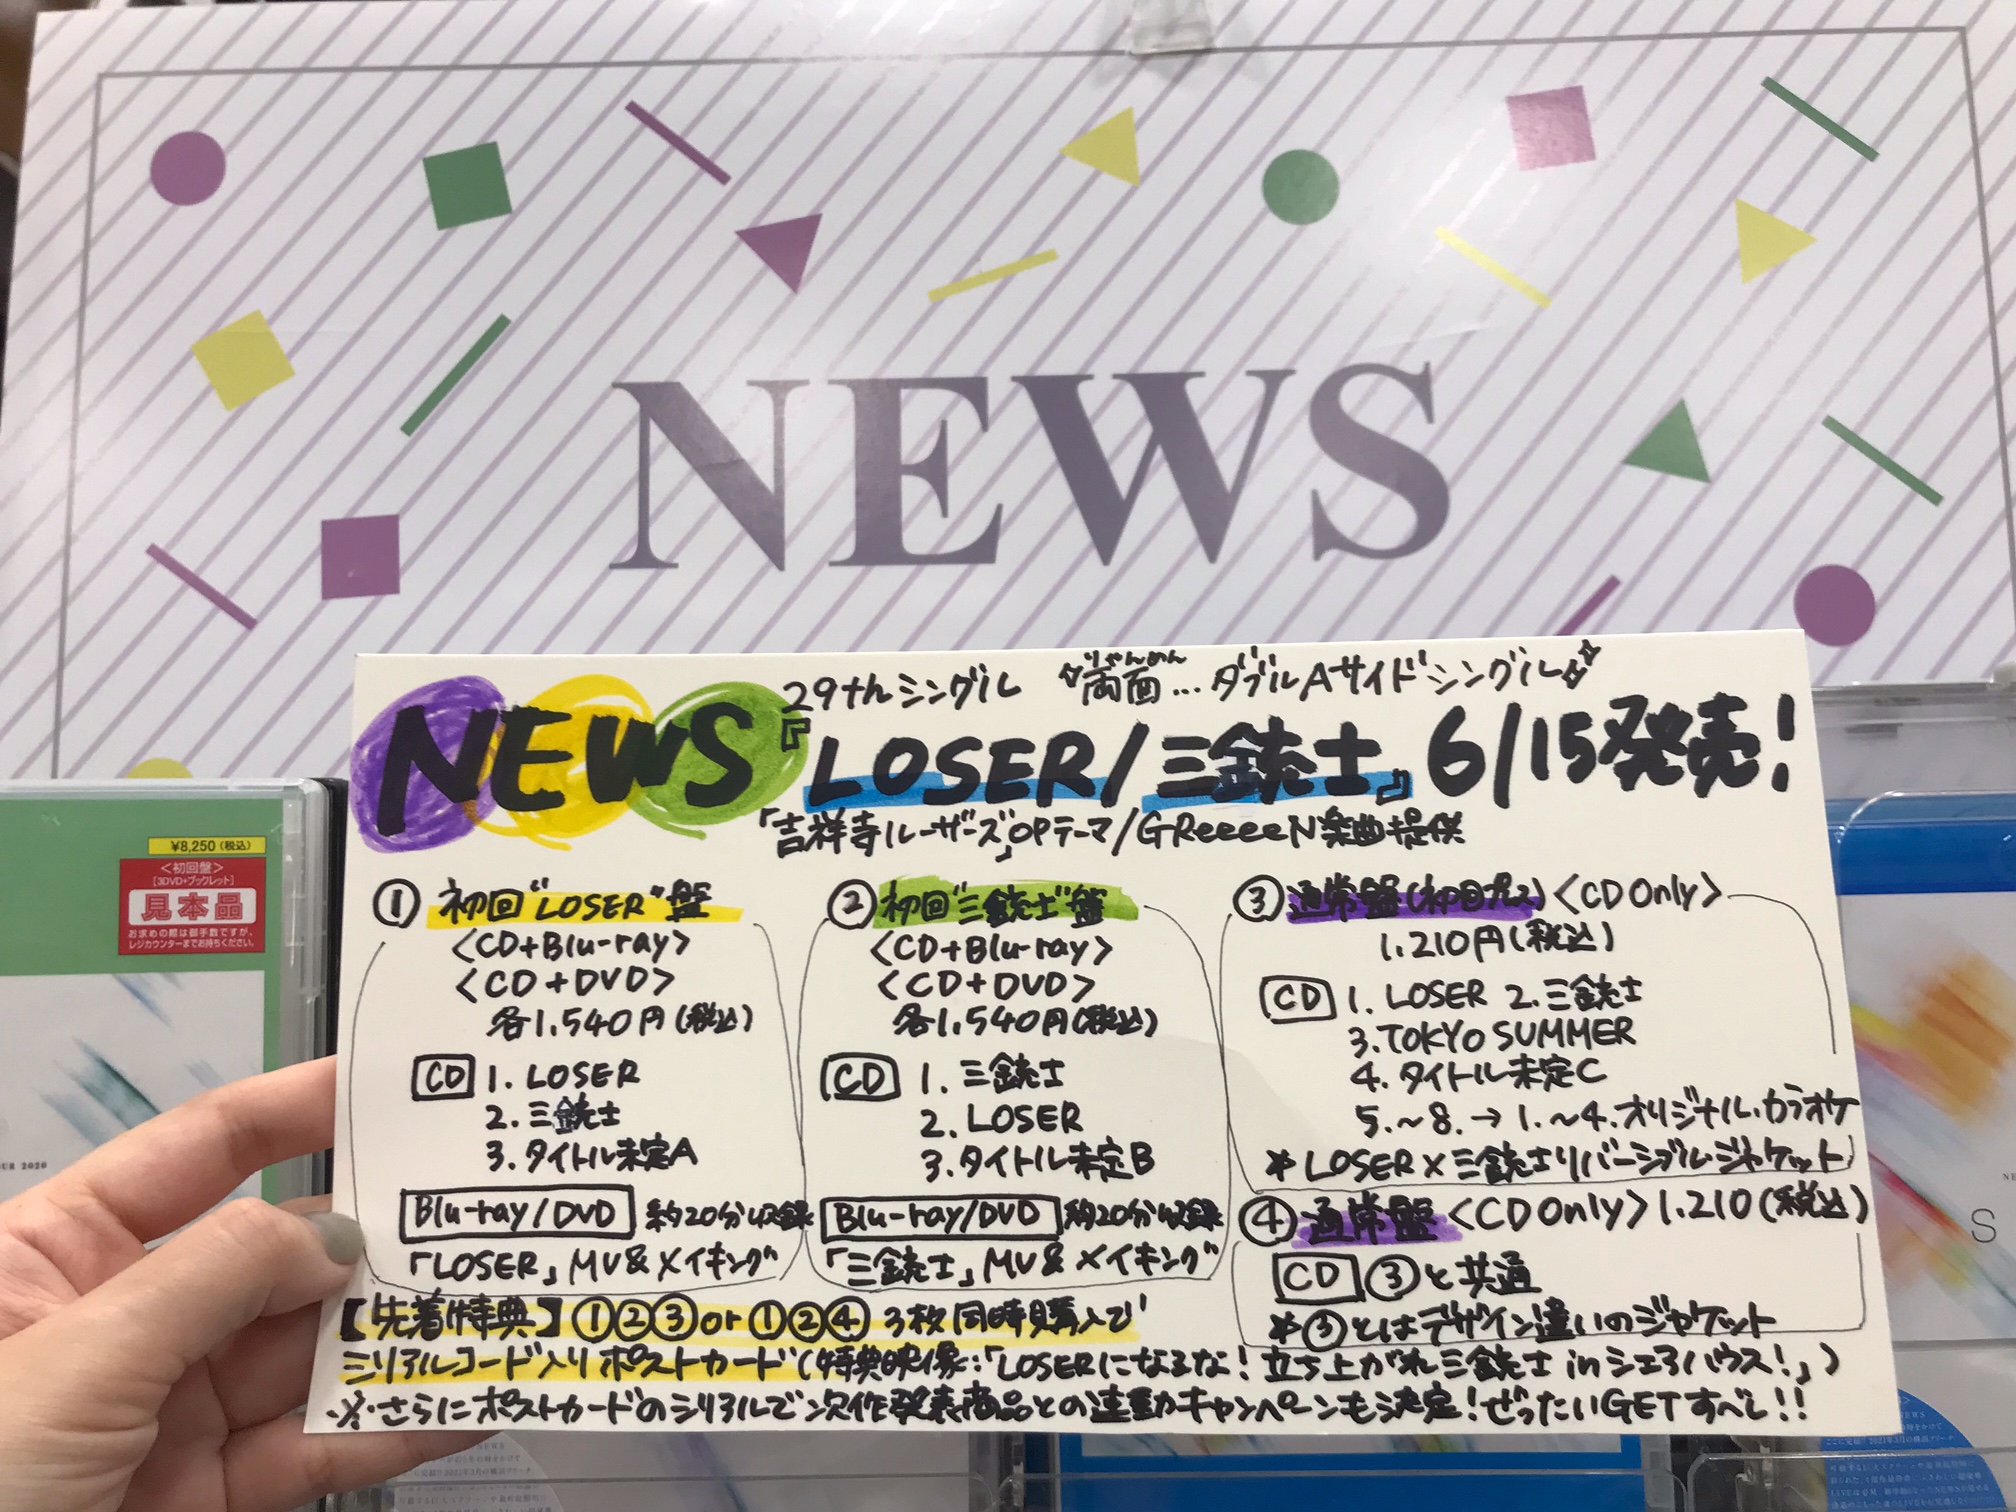 NEWS
NEWS
29thシングル
りゃんめん
両面...ダブルAサイドシングル
『LOSER/三銃士』6/15発売!
「吉祥寺ルーザーズ」OPテーマ/GReeeeN楽曲提供
① 初回"LOSER"盤
<CD+Blu-ray>
<CD+DVD>
各1.540円(税込)
CD 1. LOSER
2. 三銃士
3. タイトル未定A
Blu-ray/DVD 約20分収録
「LOSER」MV&メイキング
② 初回"三銃士"盤
<CD+Blu-ray>
<CD+DVD>
各1.540円(税込)
CD 1. 三銃士
2. LOSER
3. タイトル未定B
Blu-ray/DVD 約20分収録
「三銃士」MV&メイキング
③ 通常盤(初回プレス)<CD Only>
1.210円(税込)
CD 1. LOSER 2. 三銃士
3. TOKYO SUMMER
4. タイトル未定C
5.~8.→1.~4.オリジナル・カラオケ
*LOSER×三銃士リバーシブル・ジャケット
④ 通常盤<CD Only>1.210(税込)
CD ③と共通
*③とはデザイン違いのジャケット
【先着特典】①②③or①②④3枚同時購入で
シリアルコード入りポストカード(特典映像:「LOSERになるな!立ち上がれ三銃士inシェアハウス!」)
※さらにポストカードのシリアルで次作発表商品との連動キャンペーンも決定!ぜったいGETすべし!!
¥8,250(税込)
<初回盤>
[3DVD+ブックレット]
見本品
お求めの際は御手数ですが、
レジカウンターまでお持ちください。
UR 2020
S